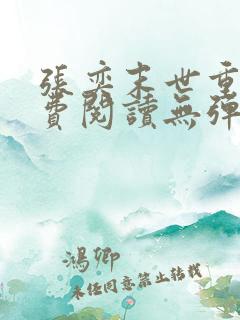 張奕末世重
費閱讀無彈
鴻卿
未經同意禁止轉載